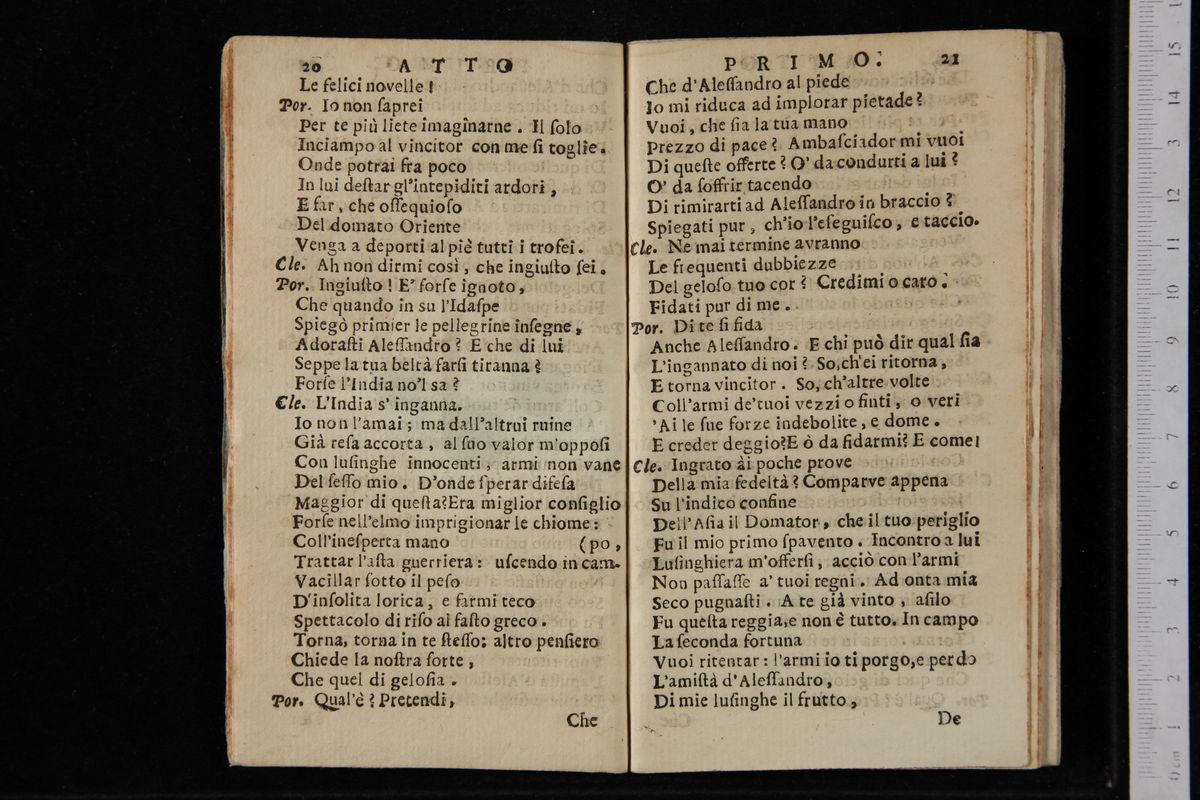 20 ATTO
Le felici novelle!
Por. Io non saprei
Per te più liete imaginarne. Il ſolo
Inciampo al vincitor con me ſi toglie.
Onde potrai fra poco
In lui deſtar gl'intepiditi ardori,
E far, che oſſequioſo
Del domato Oriente
Venga a deporti al piè tutti i trofei.
Cle. Ah non dirmi così, che ingiuſto ſei.
Por. Ingiuſto! E' forſe ignoto,
Che quando in su l'Idaſpe
Spiegò primier le pellegrine inſegne,
Adoraſti Aleſſandro? E che di lui
Seppe la tua beltà farſi tiranna?
Forſe l'India no'l sa?
Cle. L'India s' inganna.
Io non l'amai; ma dall'altrui ruine
Già reſa accorta, al ſuo valor m'oppoſi
Con luſinghe innocenti, armi non vane
Del ſeſſo mio. D'onde ſperar difeſa
Maggior di queſta?Era miglior conſiglio
Forſe nell'elmo imprigionar le chiome:
Coll'ineſperta mano (po,
Trattar l'aſta guerriera: uſcendo in cam-
Vacillar ſotto il peſo
D'inſolita lorica, e farmi teco
Spettacolo di riſo al faſto greco.
Torna, torna in te ſteſſo: altro penſiero
Chiede la noſtra ſorte,
Che quel di geloſia.
Por. Qual'è? Pretendi,
Che
PRIMO. 21
Che d'Aleſſandro al piede
Io mi riduca ad implorar pietade?
Vuoi, che ſia la tua mano
Prezzo di pace? Ambaſciador mi vuoi
Di queſte offerte? O' da condurti a lui?
O' da ſoffrir tacendo
Di rimirarti ad Aleſſandro in braccio?
Spiegati pur, ch'io l'eſeguiſco, e taccio.
Cle. Ne mai termine avranno
Le frequenti dubbiezze
Del geloſo tuo cor? Credimi o caro.
Fidati pur di me.
Por. Di te ſi fida
Anche Aleſſandro. E chi può dir qual ſia
L'ingannato di noi? So,ch'ei ritorna,
E torna vincitor. So, ch'altre volte
Coll'armi de'tuoi vezzi o finti, o veri
'Ai le ſue forze indebolite, e dome.
E creder deggio?E ò da fidarmi? E come?
Cle. Ingrato ài poche prove
Della mia fedeltà? Comparve appena
Su l'indico confine
Dell'Aſia il Domator, che il tuo periglio
Fu il mio primo ſpavento. Incontro a lui
Luſinghiera m'offerſi, acciò con l'armi
Non paſſaſſe a' tuoi regni. Ad onta mia
Seco pugnaſti. A te già vinto, aſilo
Fu queſta reggia,e non è tutto. In campo
La ſeconda fortuna
Vuoi ritentar: l'armi io ti porgo,e perdo
L'amiſtà d'Aleſſandro,
Di mie luſinghe il frutto,
De
0 cm 1 2 3 4 5 6 7 8 9 10 11 12 13 14 15